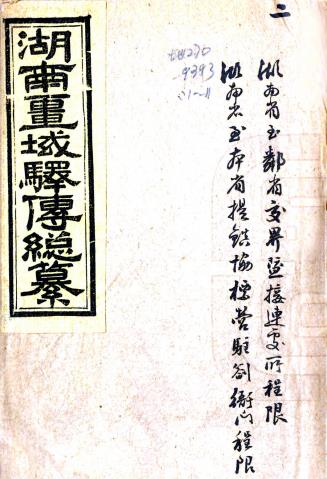 二
湖南省至鄰省交界暨接連要所程限
湖南省至本省提鎮協標營駐劄衙门程限
湖南畺域驛傳總纂
9393